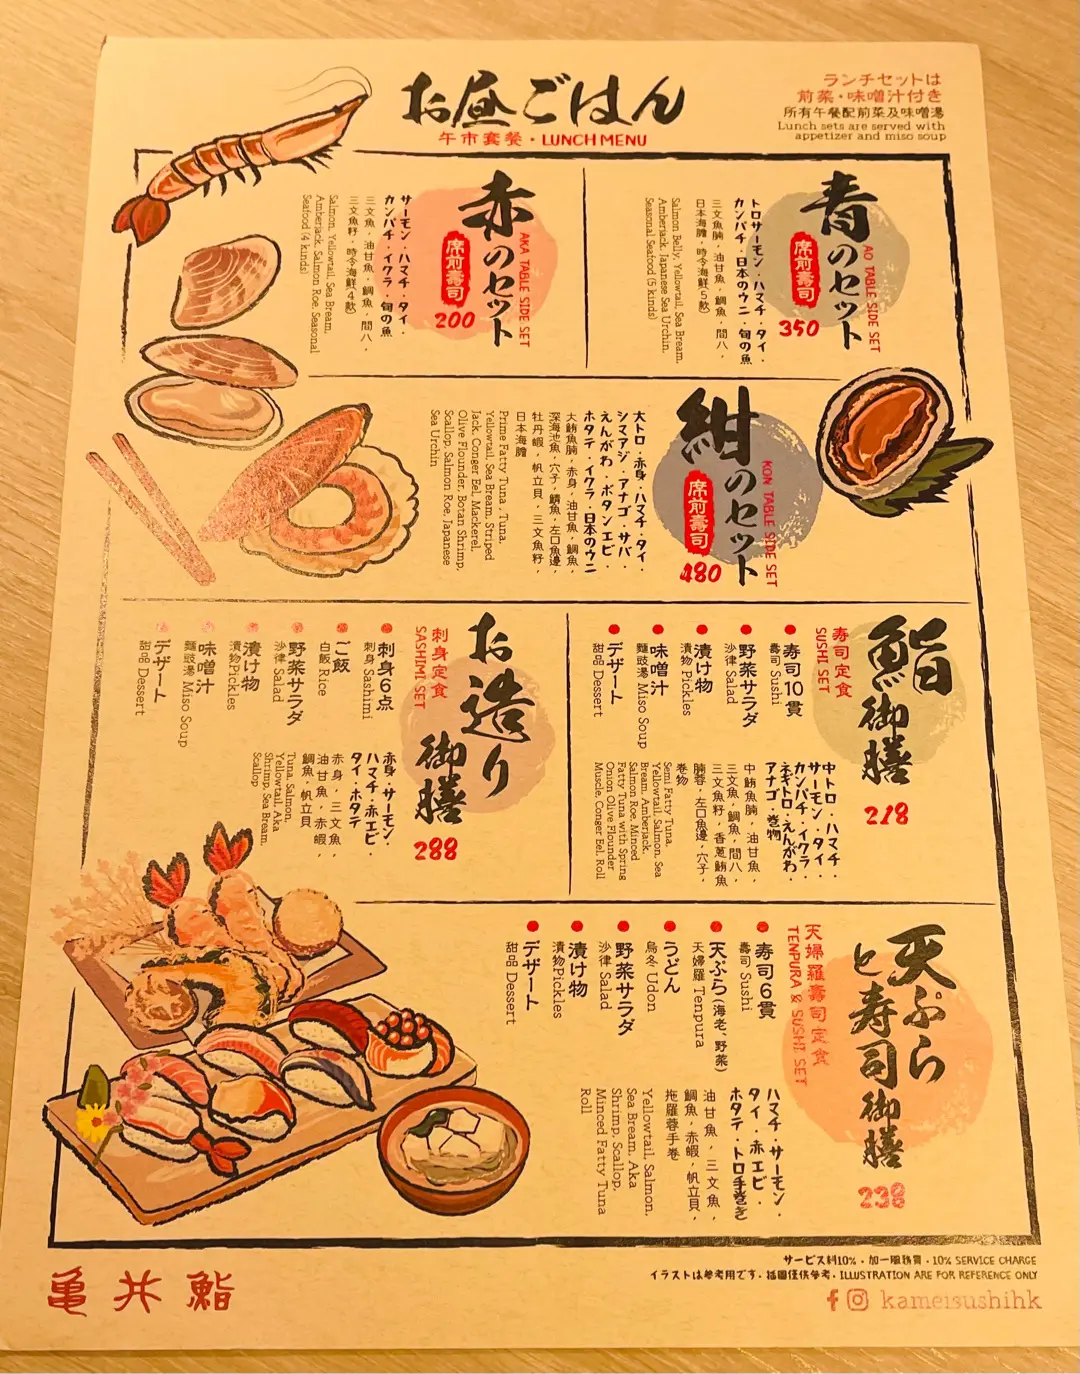 お昼ごはん
午市套餐・LUNCH MENU
ランチセットは
前菜・味噌汁付き
所有午餐配前菜及味噌湯
Lunch sets are served with
appetizer and miso soup
青のセット
AO TABLE SIDE SET
席前壽司
350
トロサーモン・ハマチ・タイ・
カンパチ・日本のウニ・旬の魚
三文魚腩，油甘魚，鯛魚，間八，
日本海膽，時令海鮮(5款)
Salmon Belly, Yellowtail, Sea Bream,
Amberjack, Japanese Sea Urchin,
Seasonal Seafood (5 kinds)
赤のセット
AKA TABLE SIDE SET
席前壽司
200
サーモン・ハマチ・タイ・
カンパチ・イクラ・旬の魚
三文魚，油甘魚，鯛魚，間八，
三文魚籽，時令海鮮(4款)
Salmon, Yellowtail, Sea Bream,
Amberjack, Salmon Roe, Seasonal
Seafood (4 kinds)
紺のセット
KON TABLE SIDE SET
席前壽司
480
大トロ・赤身・ハマチ・タイ・
シマアジ・アナゴ・サバ・
えんがわ・ボタンエビ・
ホタテ・イクラ・日本のウニ
大鮪魚腩，赤身，油甘魚，鯛魚，
深海池魚，穴子，鯖魚，左口魚邊，
牡丹蝦，帆立貝，三文魚籽，
日本海膽
Prime Fatty Tuna, Tuna,
Yellowtail, Sea Bream, Striped
Jack, Conger Eel, Mackerel,
Olive Flounder, Botan Shrimp,
Scallop, Salmon Roe, Japanese
Sea Urchin
鮨御膳
壽司定食
SUSHI SET
218
寿司10貫
壽司 Sushi
野菜サラダ
沙律 Salad
漬け物
漬物 Pickles
味噌汁
麵豉湯 Miso Soup
デザート
甜品 Dessert
中トロ・ハマチ・
サーモン・タイ・
カンパチ・イクラ・
ネギトロ・えんがわ・
アナゴ・巻物
中鮪魚腩，油甘魚，
三文魚，鯛魚，間八，
三文魚籽，香蔥鮪魚
腩蓉，左口魚邊，穴子，
卷物
Semi Fatty Tuna,
Yellowtail, Salmon, Sea
Bream, Amberjack,
Salmon Roe, Minced
Fatty Tuna with Spring
Onion Olive Flounder
Muscle, Conger Eel, Roll
お造り御膳
刺身定食
SASHIMI SET
288
刺身6点
刺身 Sashimi
ご飯
白飯 Rice
野菜サラダ
沙律 Salad
漬け物
漬物Pickles
味噌汁
麵豉湯 Miso Soup
デザート
甜品 Dessert
赤身・サーモン・
ハマチ・赤エビ・
タイ・ホタテ
赤身，三文魚，
油甘魚，赤蝦，
鯛魚，帆立貝
Tuna, Salmon,
Yellowtail, Aka
Shrimp, Sea Bream,
Scallop
天ぷらと寿司御膳
天婦羅壽司定食
TENPURA & SUSHI SET
238
寿司6貫
壽司 Sushi
天ぷら(海老、野菜)
天婦羅 Tempura
うどん
烏冬 Udon
野菜サラダ
沙律 Salad
漬け物
漬物Pickles
デザート
甜品 Dessert
ハマチ・サーモン・
タイ・赤エビ・
ホタテ・トロ手巻き
油甘魚，三文魚，
鯛魚，赤蝦，帆立貝，
拖羅蓉手卷
Yellowtail, Salmon,
Sea Bream, Aka
Shrimp, Scallop,
Minced Fatty Tuna
Roll
サービス料10%・加一服務費・10% SERVICE CHARGE
イラストは参考用です・插圖僅供參考・ILLUSTRATION ARE FOR REFERENCE ONLY
kameisushihk
亀井鮨